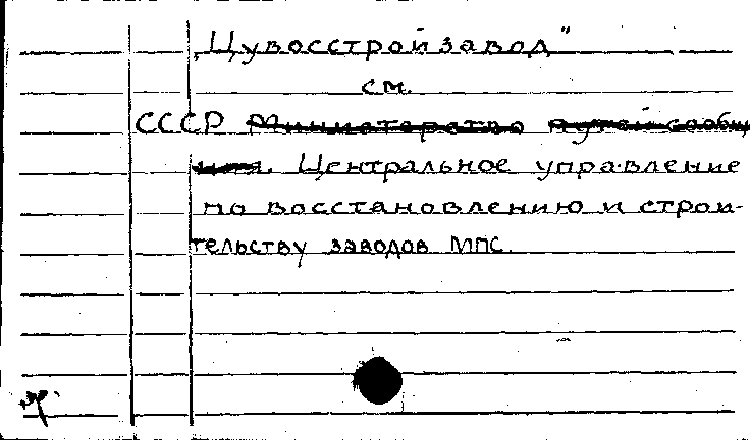 „Цувосстройзавод"
см.
СССР Министерство путей сообще
ния. Центральное управление
по восстановлению и строи-
тельству заводов МПС.